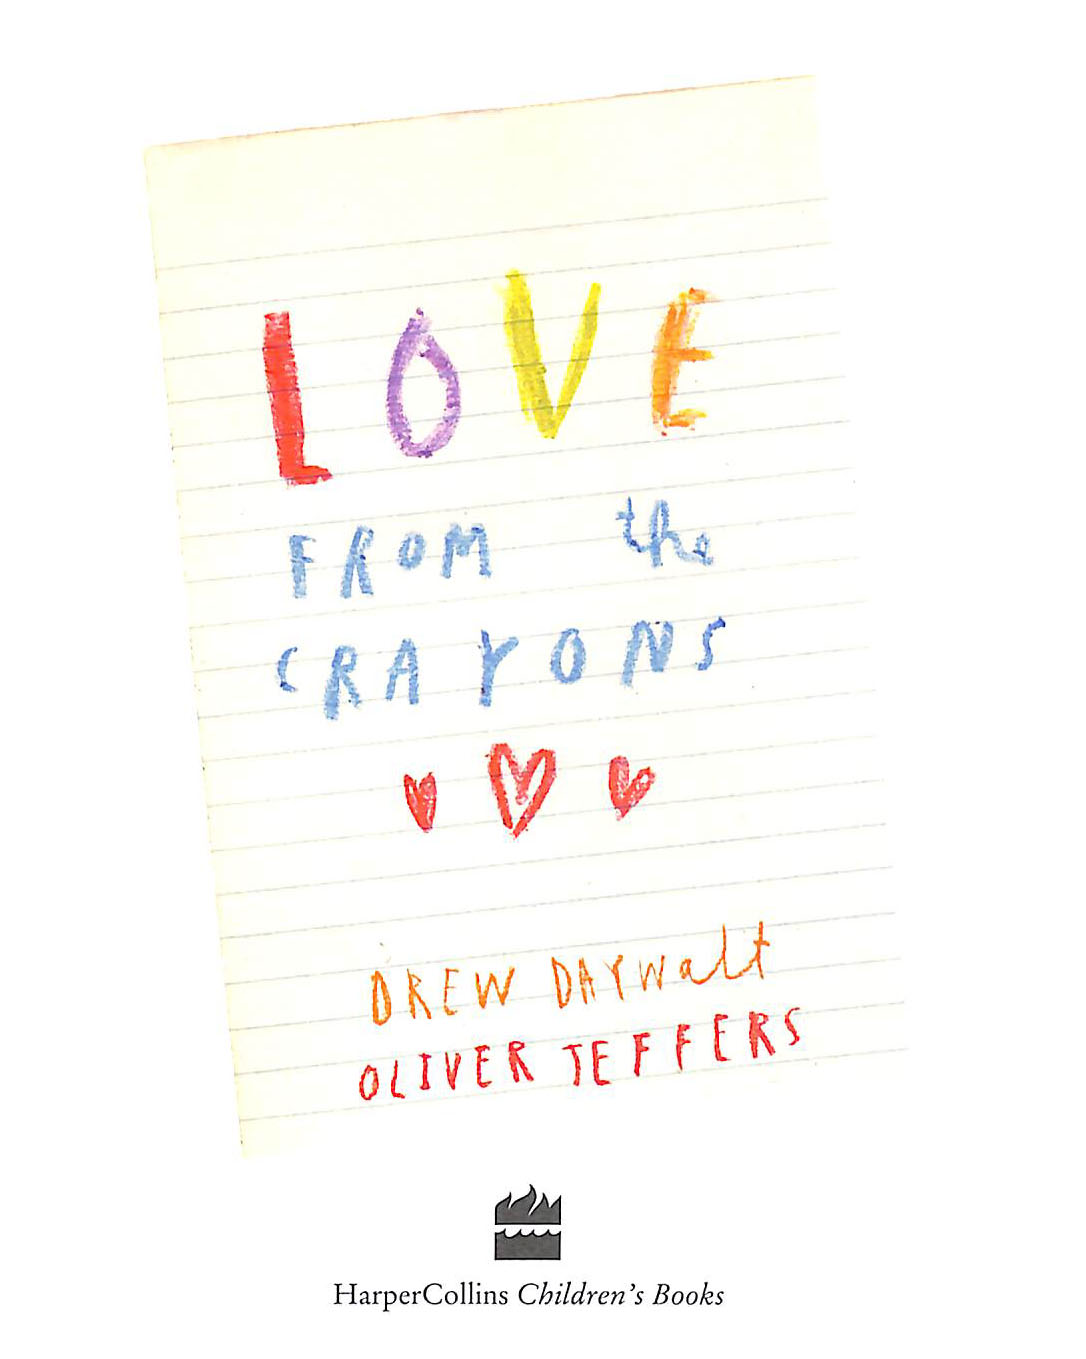 LOVE
FROM the
CRAYONS
DREW DAYWalt
OLIVER JEFFERS
HarperCollins Children's Books